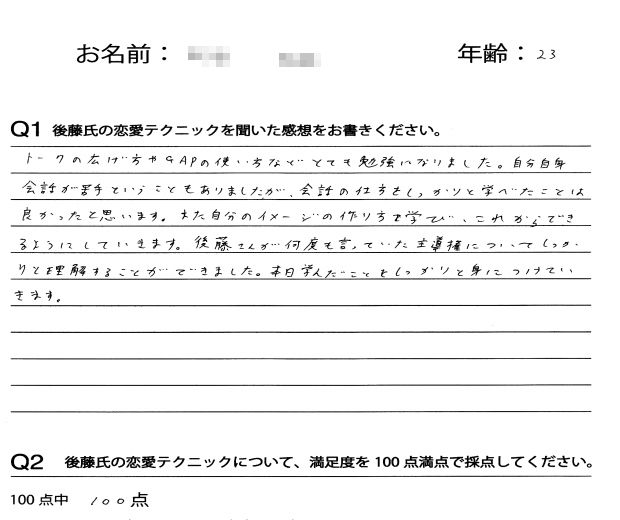 お名前： 年齢： 23
Q1 後藤氏の恋愛テクニックを聞いた感想をお書きください。
トークの広げ方やGAPの使い方などとても勉強になりました。自分自身
会話が苦手ということもありましたが、会話の仕方をしっかりと学べたことは
良かったと思います。また自分のイメージの作り方も学び、これからでき
るようにしていきます。後藤さんが何度も言っていた主導権についてしっか
りと理解することができました。本日学んだことをしっかりと身につけてい
きます。
Q2 後藤氏の恋愛テクニックについて、満足度を100点満点で採点してください。
100点中 100点